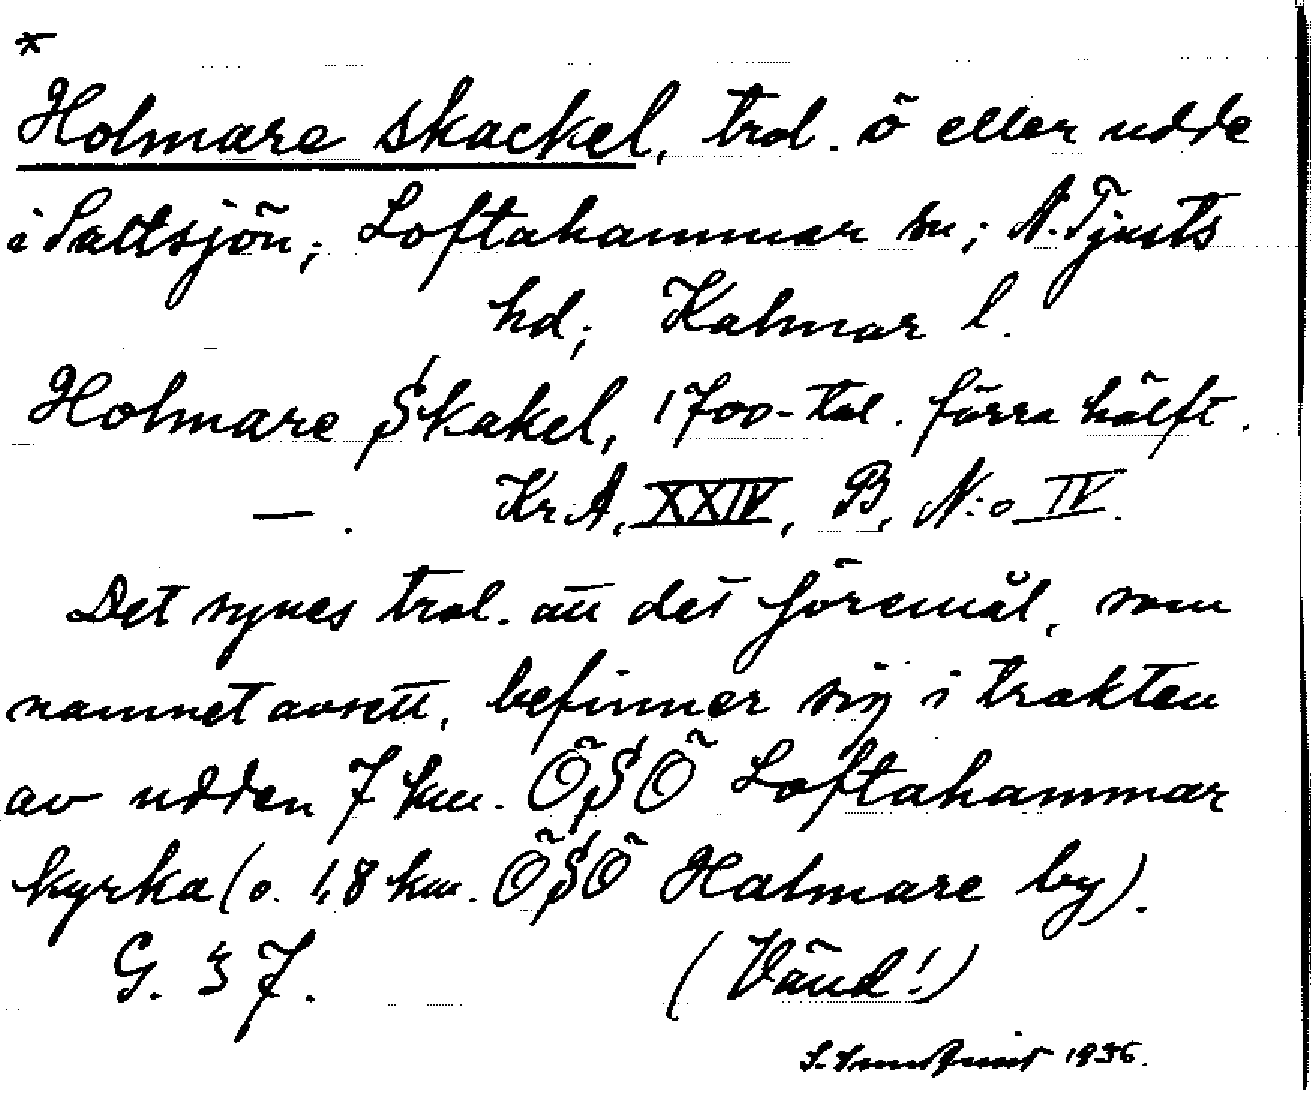 *
Holmare skackel, trol. ö eller udde
i Saltsjön; Loftahammar sn; N. Tjusts
hd; Kalmar l.
Holmare Skakel, 1700-tal. förra hälft.
— . Kr.A. XXIV, B, N:o IV.
Det synes trol. att det föremål, som
namnet avsett, befinner sig i trakten
av udden 7 km. ÖSÖ Loftahammar
kyrka (o. 1,8 km. ÖSÖ Halmare by).
G. 37. (Vänd!)
1936.